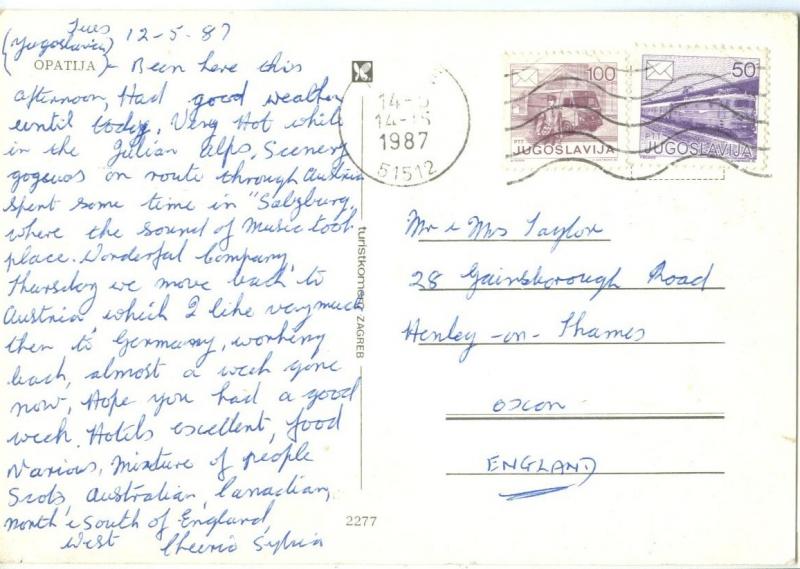 Tues
(Yugoslavia) 12-5-87
(OPATIJA) - Been here this
afternoon, Had good weather
until today, Very Hot while
in the Julian alps, Scenery
gogeuos on route through Austria
spent some time in "Salzburg,
where the sound of Music took
place. Wonderful Company,
Thursday we move back to
Austria which I like very much
then to Germany, working
back, almost a week gone
now, Hope you had a good
week. Hotels excellent, food
Various, Mixture of people
Scots, Australian, Canadian,
North & South of England,
West Cheerio Sylvia
turistkomerc ZAGREB
2277
14-5
14-15
1987
51512
100
PTT
JUGOSLAVIJA
50
PTT
JUGOSLAVIJA
Mr & Mrs Taylor
28 Gainsborough Road
Henley-on-Thames
oxon
ENGLAND